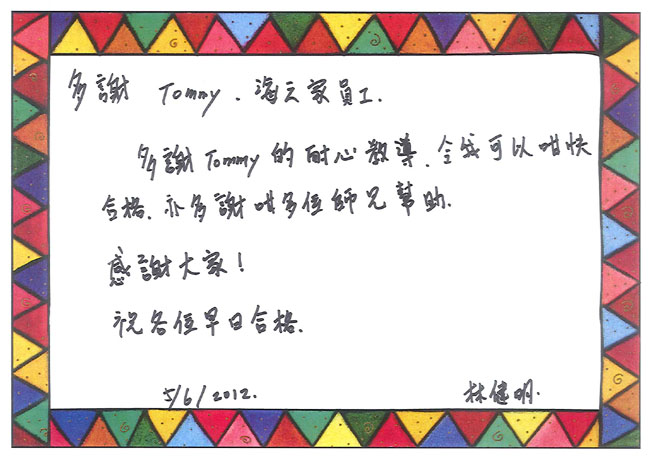 多謝 Tommy、海之家員工.
多謝Tommy的耐心教導、令我可以咁快
合格、亦多謝咁多位師兄幫助.
感謝大家!
祝各位早日合格.
5/6/2012. 林健明